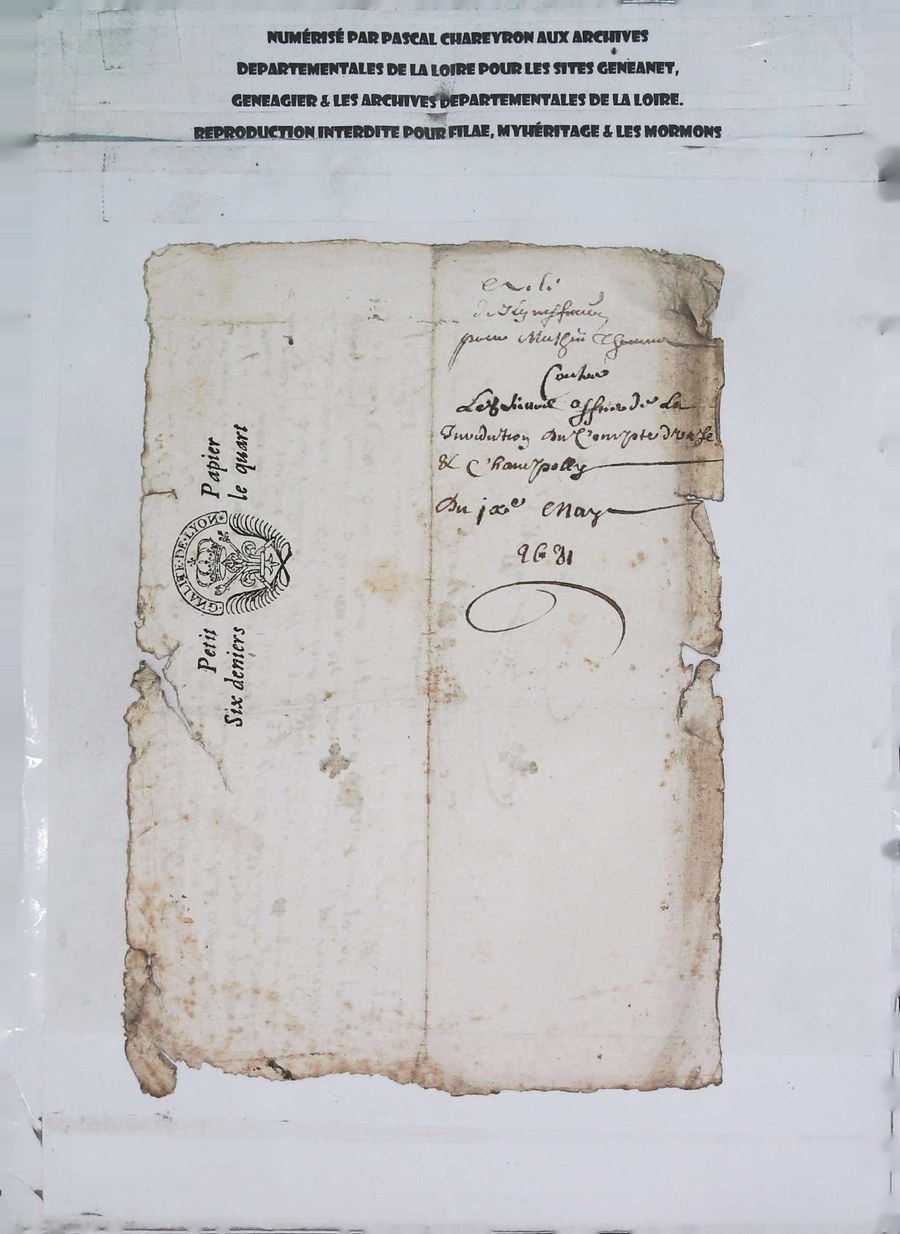 NUMÉRISÉ PAR PASCAL CHAREYRON AUX ARCHIVES
DEPARTEMENTALES DE LA LOIRE POUR LES SITES GENEANET,
GENEAGIER & LES ARCHIVES DEPARTEMENTALES DE LA LOIRE.
REPRODUCTION INTERDITE POUR FILAE, MYHÉRITAGE & LES MORMONS
pour Mathiu
Contre
officier de La
Juridiction Du Compte d'urfe
& Champolly
Du jxe May
1681
Petit Papier
Six deniers le quart
G·NALITE·DE·LYON